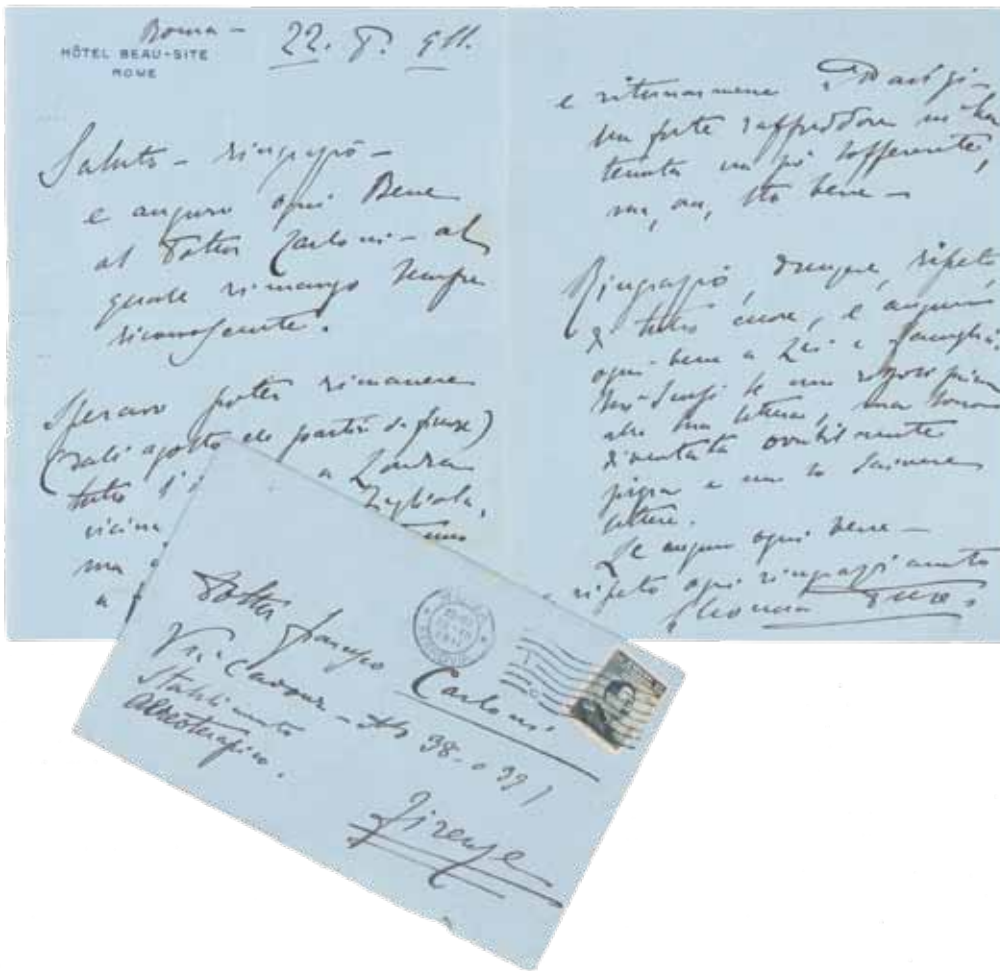 Roma –
HÔTEL BEAU-SITE
ROME
22.
Saluto – ringrazio –
e auguro ogni Bene
al Dottor Carloni – al
quale rimango sempre
riconoscente.
Speravo poter rimanere
(dall'agosto che partii da firenze)
tutto l' a Londra
vicina figliola,
ma
a
e ritornarmene Parigi –
Un forte raffreddore mi ha
tenuta un po' sofferente,
ma, ora, sto bene –
Ringrazio, dunque, ripeto,
di tutto cuore, e auguro
ogni bene a Lei e famiglia.
Mi scusi se non risposi prima
alla sua lettera, ma sono
diventata
pigra e non so scrivere
lettere.
Le auguro ogni bene –
e ripeto ogni ringraziamento
Eleonora Duse
Dottor Francesco Carloni
Via Cavour – No 38 – o 39
Stabilimento
Aereoterapico.
Firenze